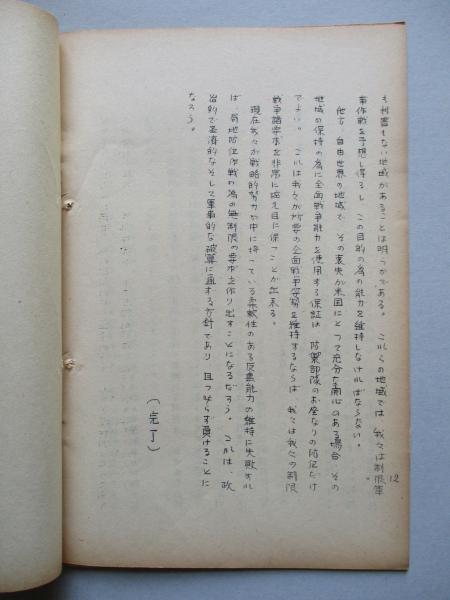 12
も利害もない地域があることは明らかである。これらの地域では我々は制限軍
事作戦を予想し得るし、この目的の為の能力を維持しなければならない。
他方、自由世界の地域で、その喪失が米国にとって充分な関心のある場合、その
地域の保持の為に全面戦争能力を使用する保証は、防禦部隊のお座なりの防衛だけ
でよい。これは我々が所要の全面戦争態勢を維持するならば、我々は我々の制限
戦争諸要求を非常に控え目に保つことが出来る。
現在我々が戦略的努力の中に持っている柔軟性のある反撃能力の維持に失敗すれ
ば、局地防衛作戦の為の無制限の要求を作り出すことになるだろう。これは、政
治的で経済的なそして軍事的な破算に通ずる方針であり、且つ必らず負けることに
なろう。
(完了)